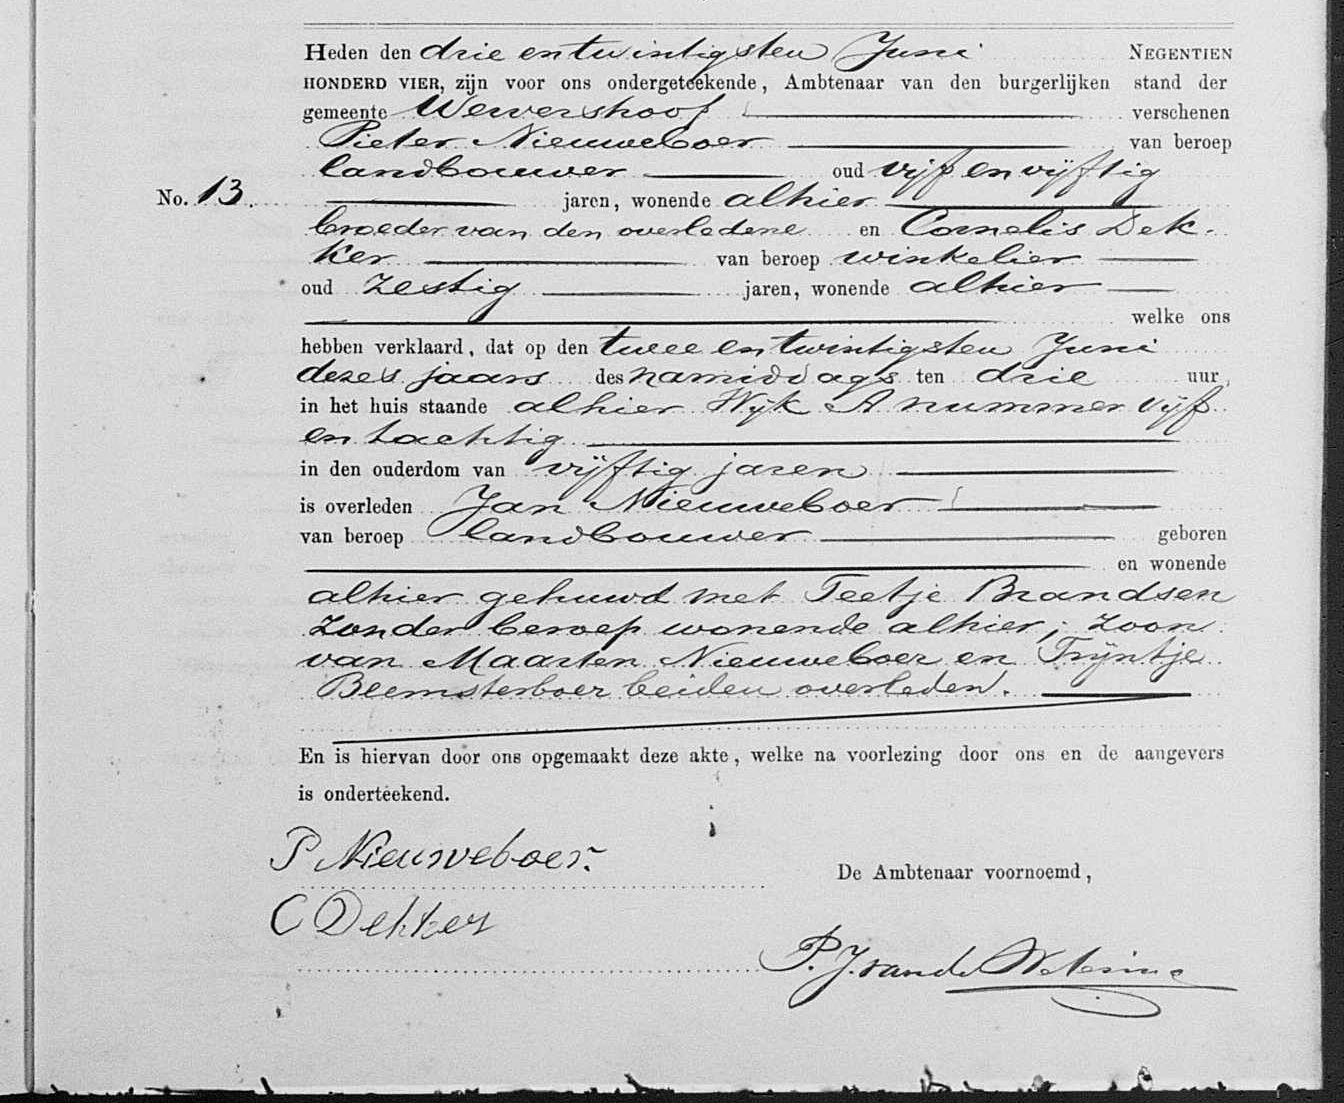 Heden den drie en twintigsten Juni NEGENTIEN
HONDERD VIER, zijn voor ons ondergeteekende, Ambtenaar van den burgerlijken stand der
gemeente Wervershoof verschenen
Pieter Nieuweboer van beroep
landbouwer oud vijf en vijftig
No. 13. jaren, wonende alhier
broeder van den overledene en Cornelis Dek-
ker van beroep winkelier
oud zestig jaren, wonende alhier
welke ons
hebben verklaard, dat op den twee en twintigsten Juni
dezes jaars des namiddags ten drie uur,
in het huis staande alhier Wijk A nummer vijf
en tachtig
in den ouderdom van vijftig jaren
is overleden Jan Nieuweboer
van beroep landbouwer geboren
en wonende
alhier gehuwd met Teetje Brandsen
zonder beroep wonende alhier; zoon
van Maarten Nieuweboer en Trijntje
Beemsterboer beiden overleden.
En is hiervan door ons opgemaakt deze akte, welke na voorlezing door ons en de aangevers
is onderteekend.
P Nieuweboer.
De Ambtenaar voornoemd,
C Dekker
P. J. van de Wetering